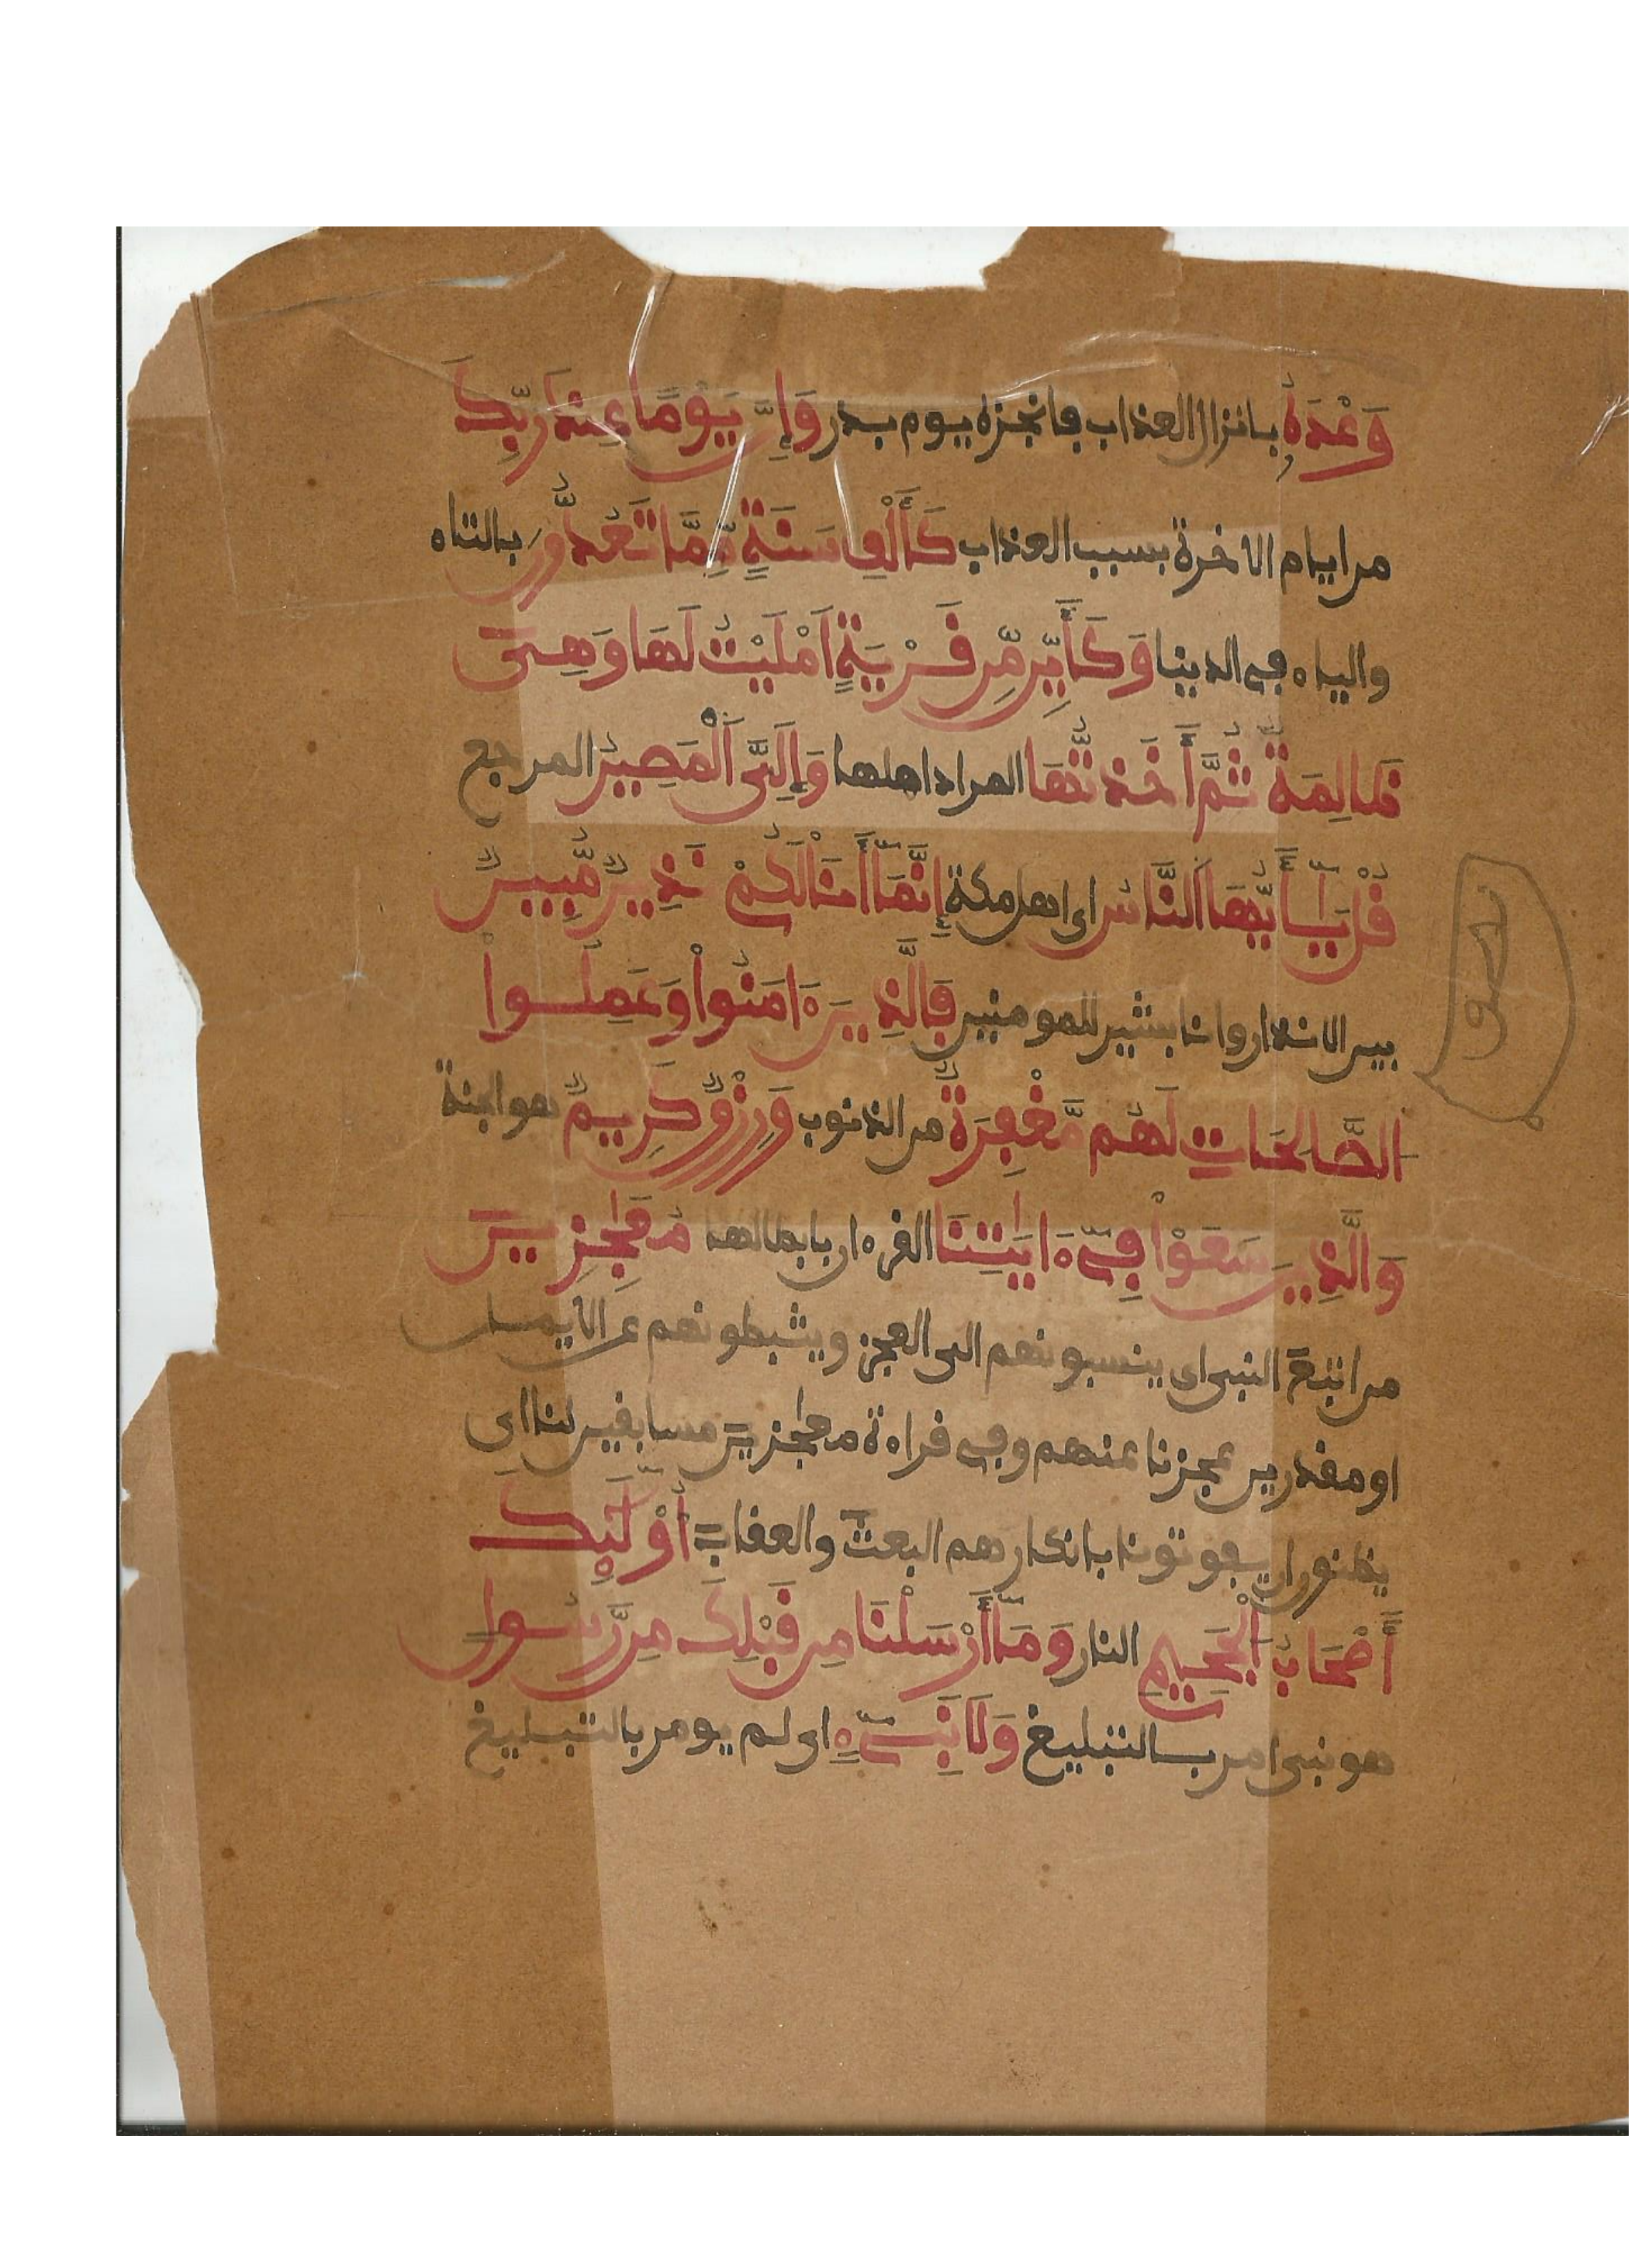 وَعْدَهُ بانزال العذاب فانجزه يوم بدر وَإِنَّ يَوْمًا عِندَ رَبِّكَ
من ايام الاخرة بسبب العذاب كَأَلْفِ سَنَةٍ مِّمَّا تَعُدُّونَ بالتاء
والياء في الدنيا وَكَأَيِّن مِّن قَرْيَةٍ اَمْلَيْتُ لَهَا وَهِىَ
ظَالِمَةٌ ثُمَّ أَخَذتُّهَا المراد اهلها وَإِلَىَّ اَلْمَصِيرُ المرجع
قُلْ يَٰأَيُّهَا اَلنَّاسُ اى اهل مكة إِنَّمَا أَنَا لَكُمْ نَذِيرٌ مُّبِينٌ
بين الانذار وانا بشير للمومنين فَالَّذِينَ ءَامَنُواْ وَعَمِلُواْ
الصَّالِحَاتِ لَهُم مَّغْفِرَةٌ من الذنوب وَرِزْقٌ كَرِيمٌ هو الجنة
وَالَّذِينَ سَعَوْاْ فِىٓ ءَايَٰتِنَا القرءان بابطالها مُعَٰجِزِينَ
من اتبع النبى اى ينسبونهم الى العجز ويثبطونهم عن الايمان
او مقدرين عجزنا عنهم وفي قراءة معٰجزين مسابقين لنا اى
يظنون ان يفوتونا بانكارهم البعث والعقاب أُوْلَٰٓئِكَ
أَصْحَابُ اَلْجَحِيمِ النار وَمَا أَرْسَلْنَا مِن قَبْلِكَ مِن رَّسُولٍ
هو نبى امر بالتبليغ وَلَا نَبِىٓءٍ اى لم يومر بالتبليغ
نصف